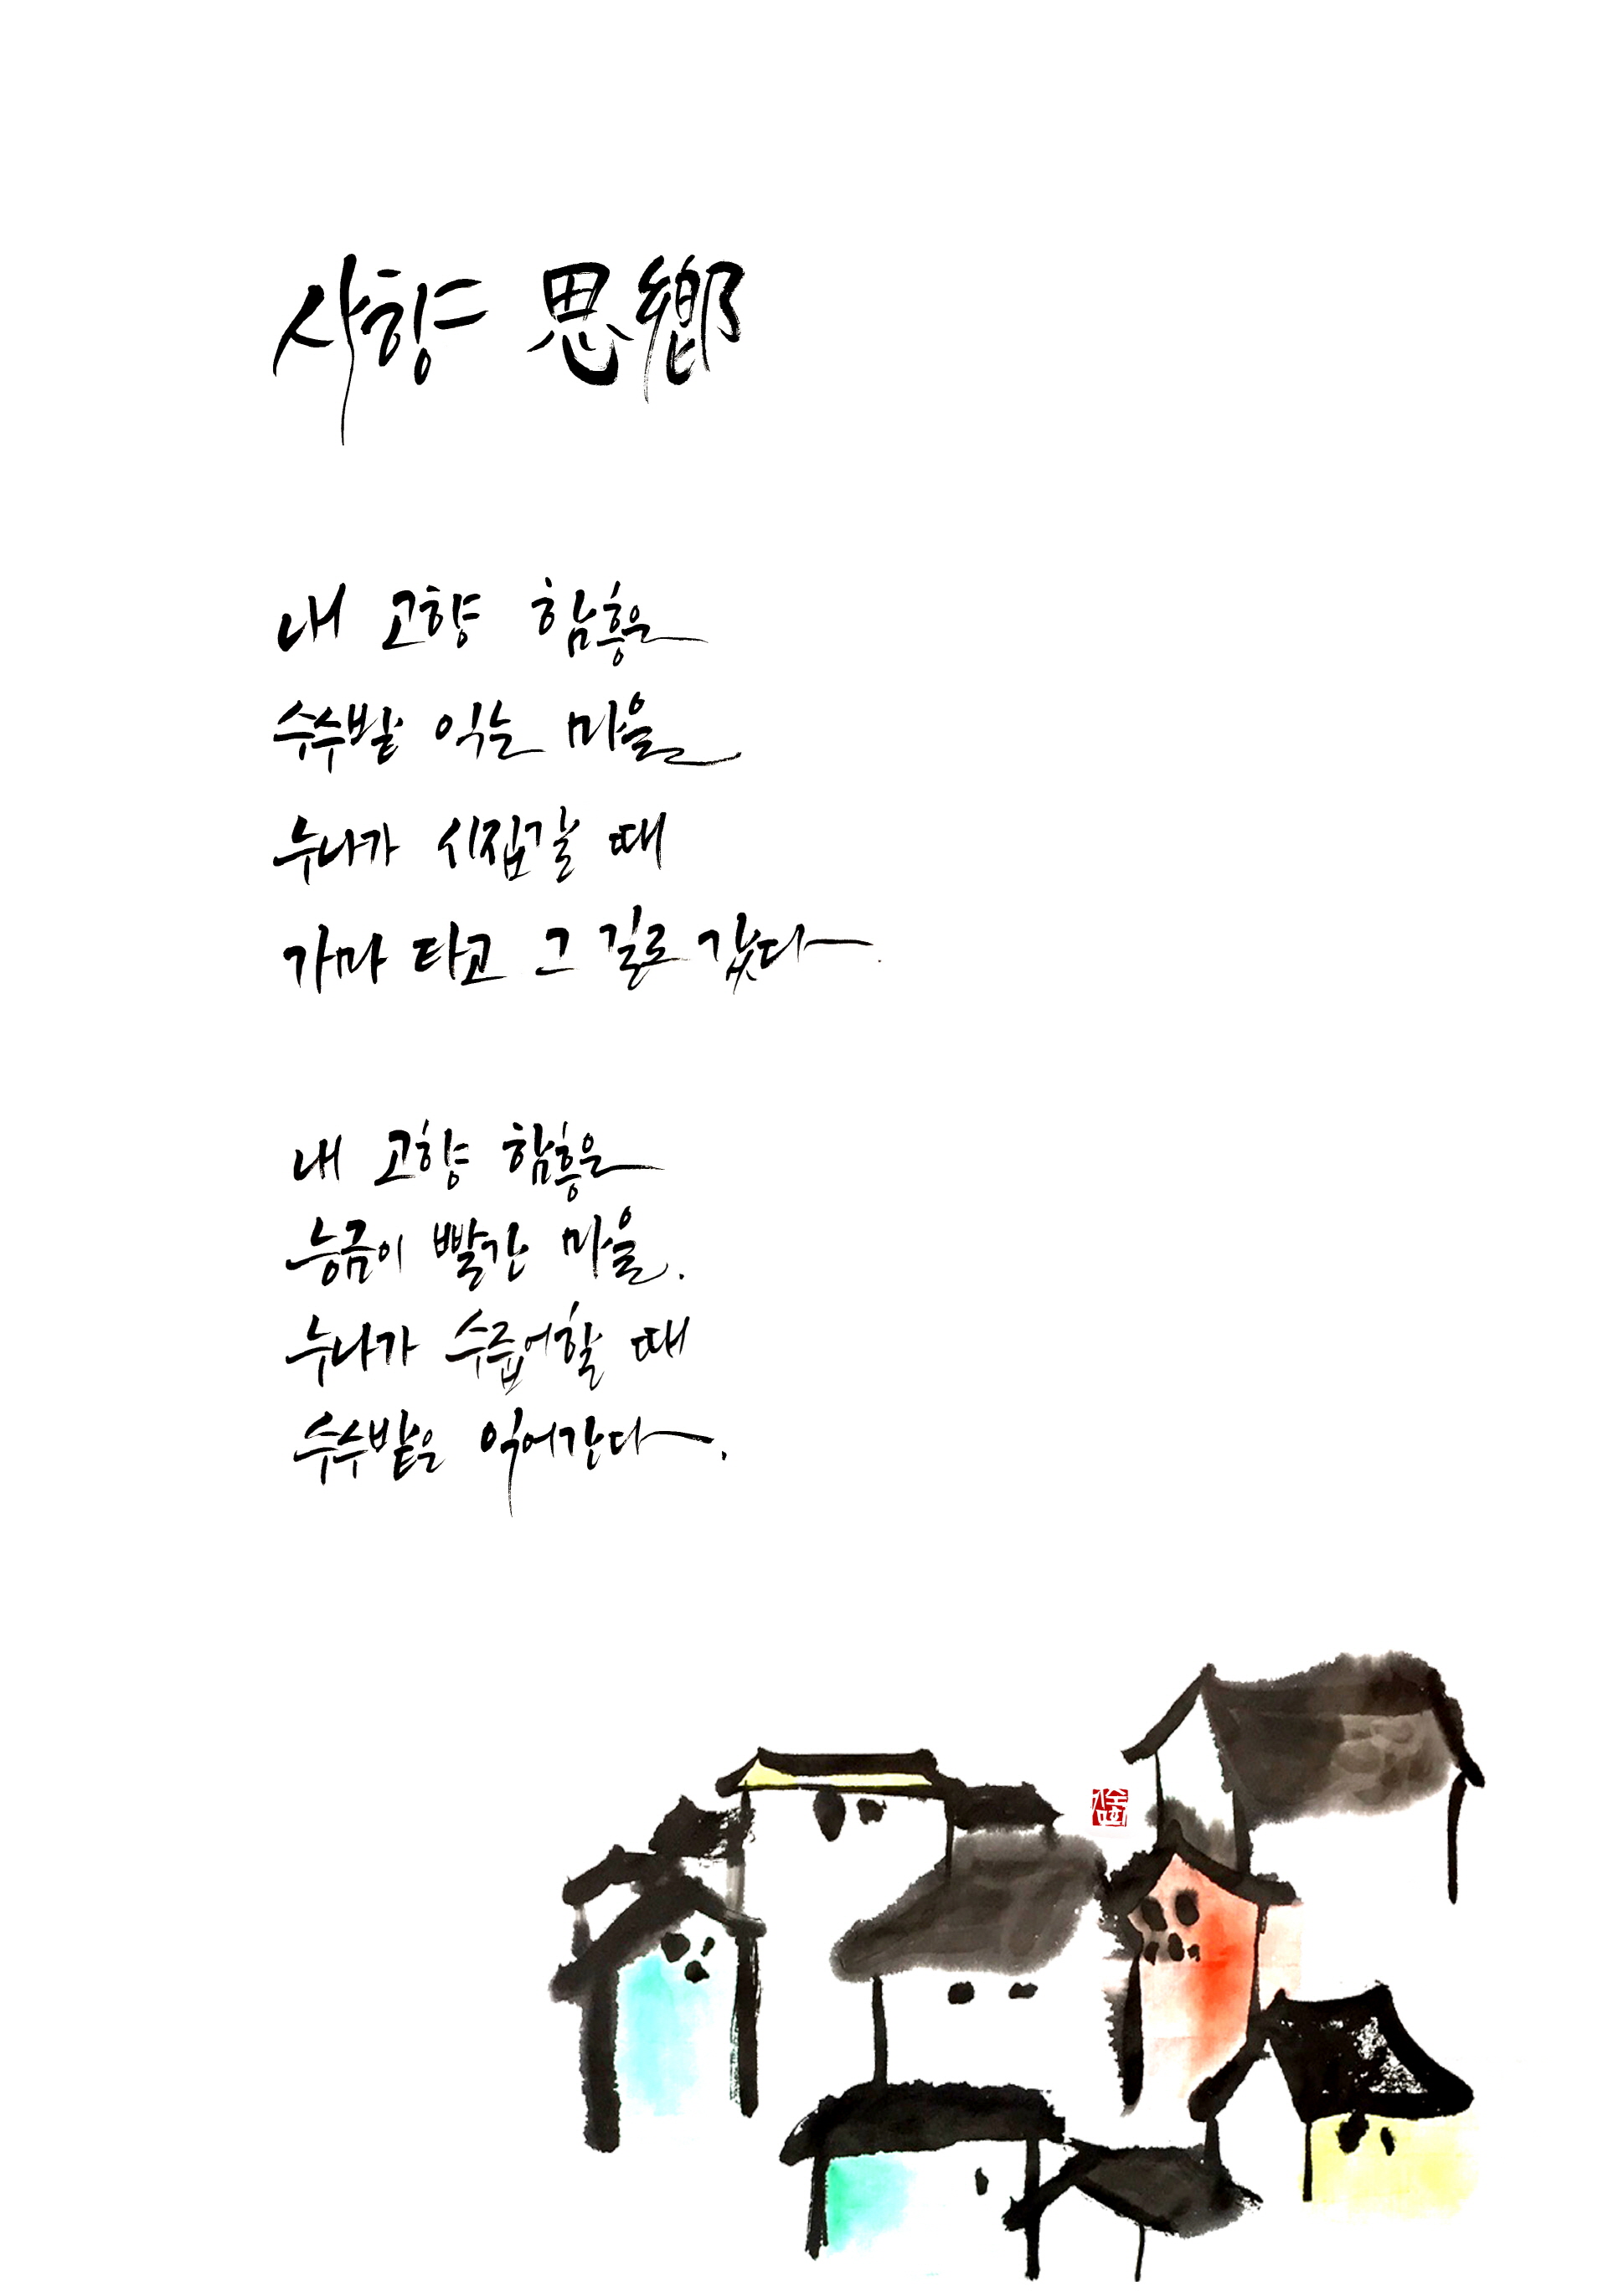 사향 思鄕
내 고향 함흥은
수수밭 익는 마을
누나가 시집갈 때
가마 타고 그 길로 갔다.
내 고향 함흥은
능금이 빨간 마을.
누나가 수줍어할 때
수수밭은 익어간다.